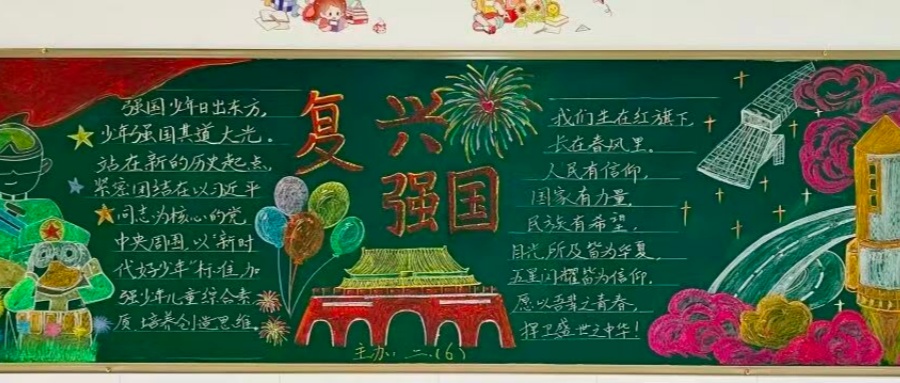 强国少年日出东方,
少年强国其道大光。
站在新的历史起点,
紧密团结在以习近平
同志为核心的党
中央周围,以“新时
代好少年”标准,加
强少年儿童综合素
质,培养创造思维。
复兴
强国
我们生在红旗下,
长在春风里。
人民有信仰,
国家有力量,
民族有希望,
目光所及皆为华夏,
五星闪耀皆为信仰。
愿以吾辈之青春,
捍卫盛世之中华!
主办:二.(6)